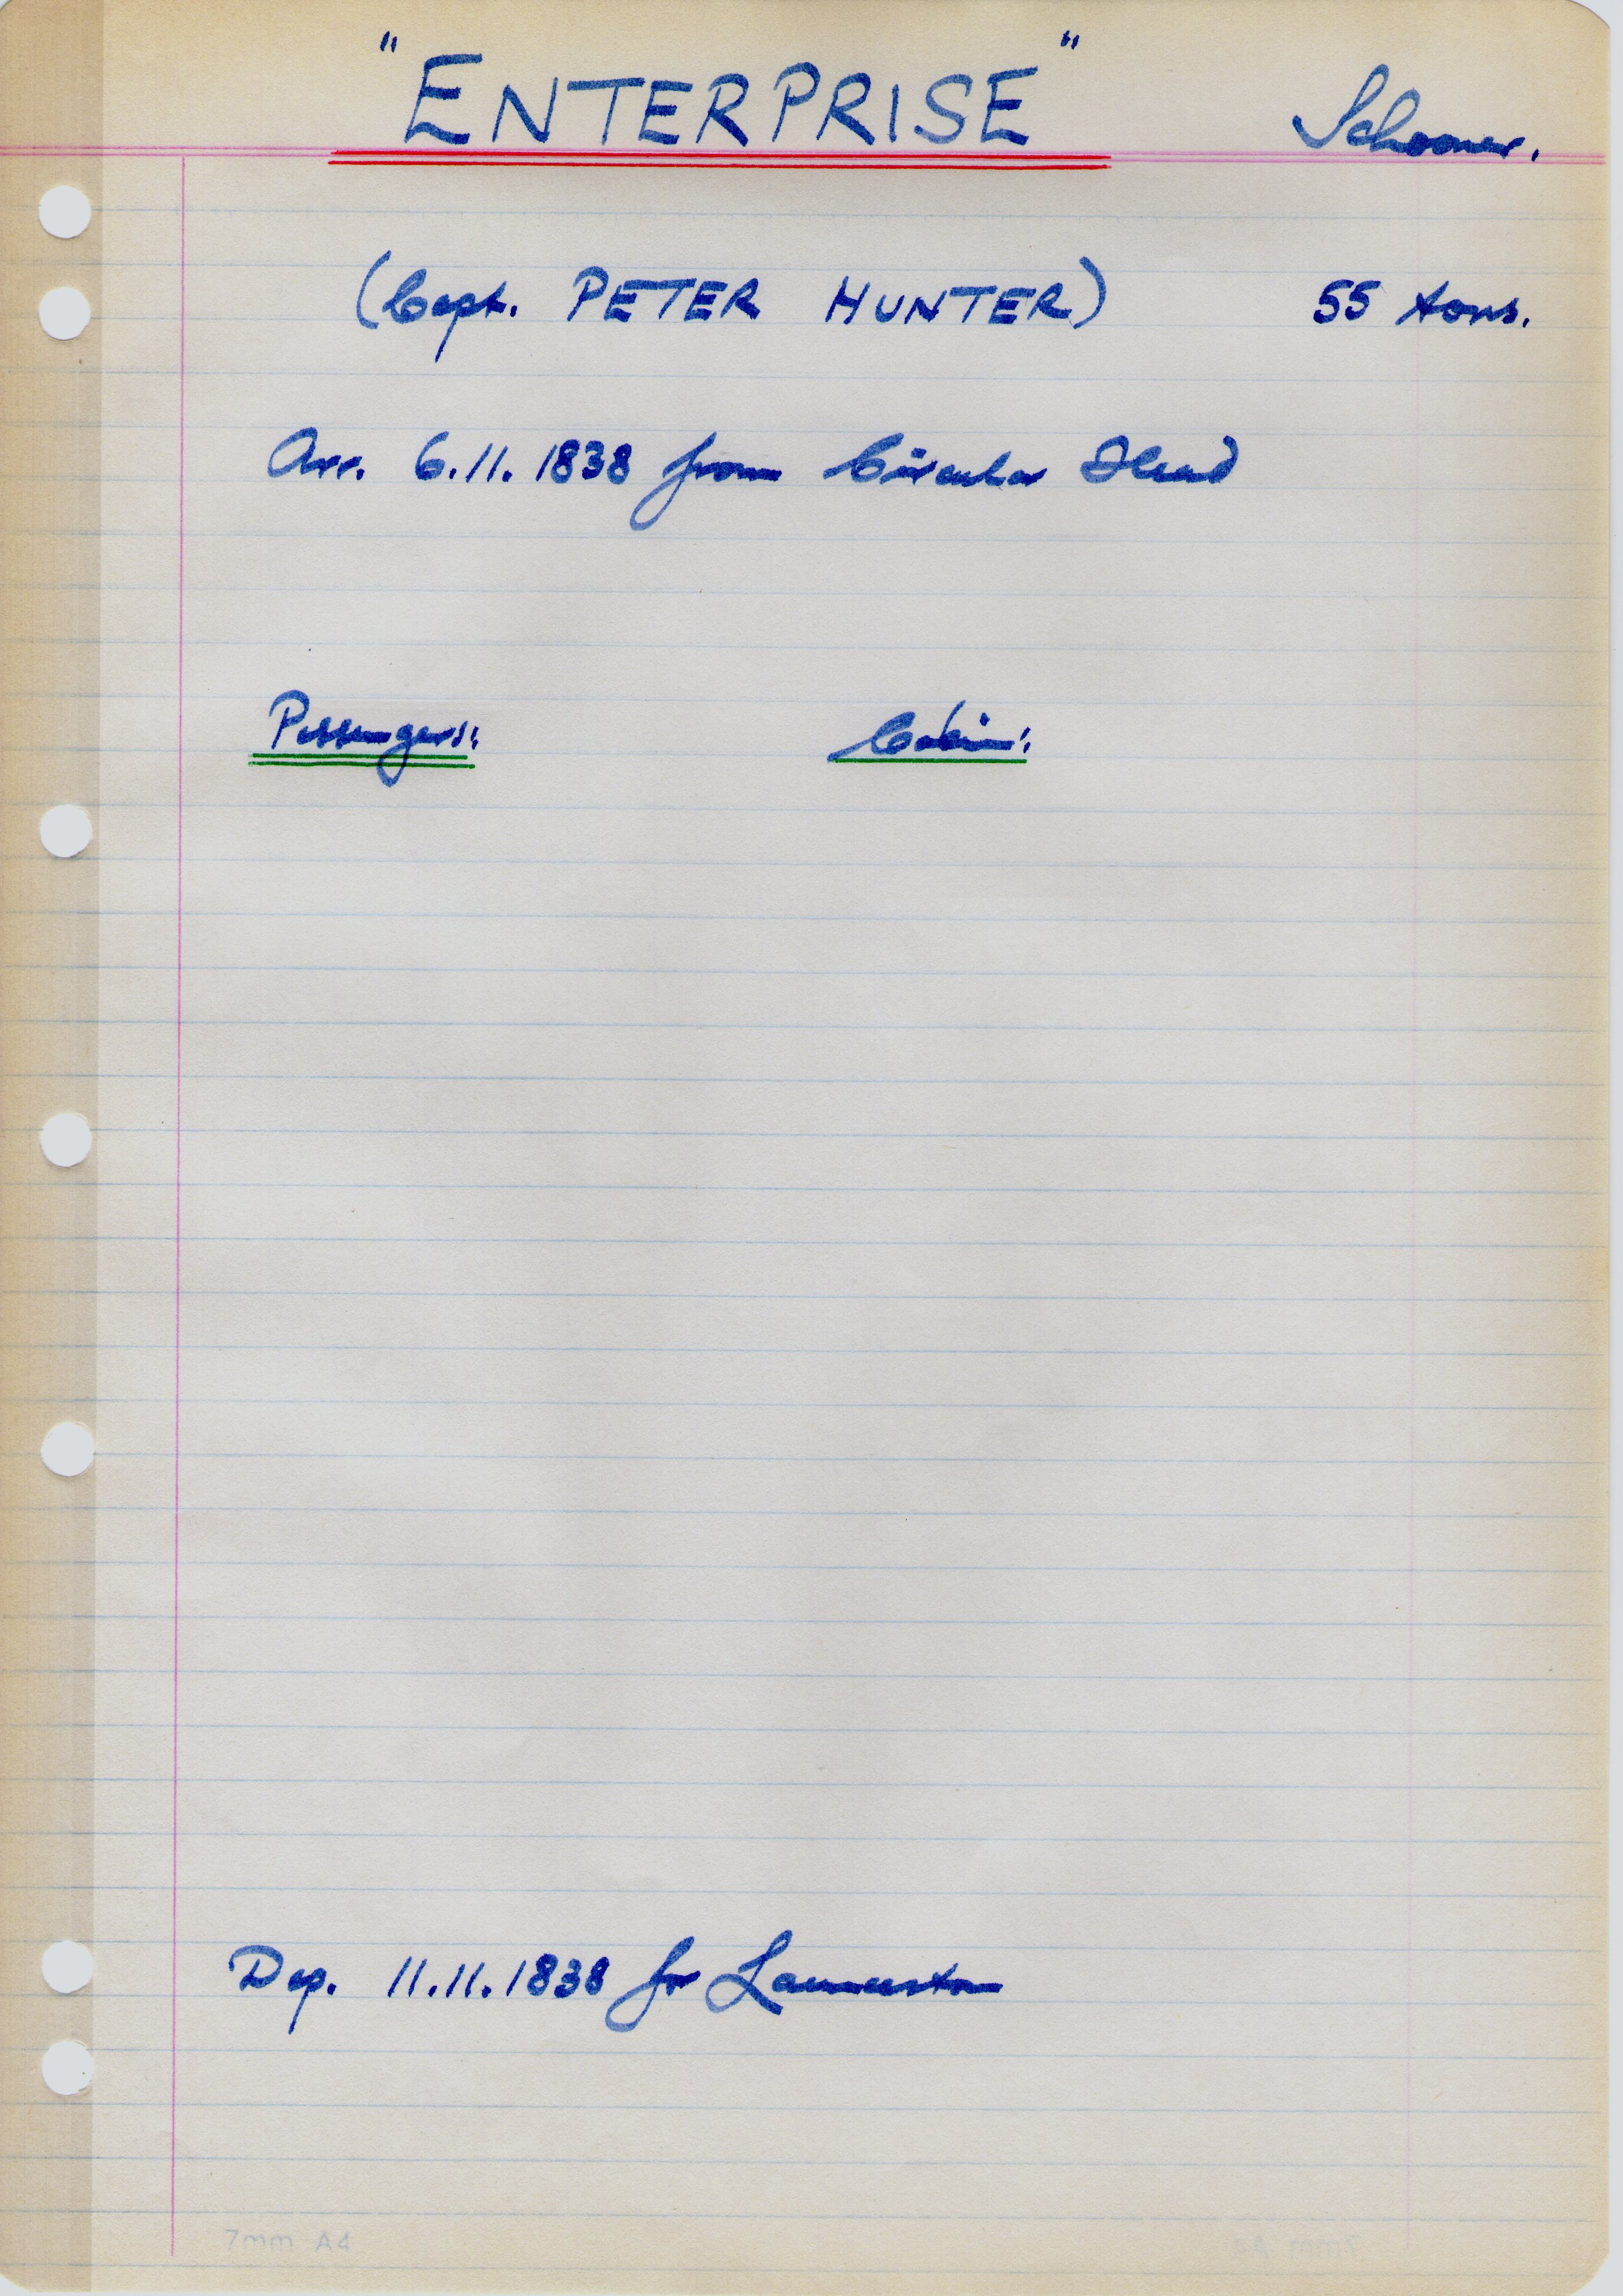 "ENTERPRISE" Schooner.
(Capt. PETER HUNTER) 55 tons.
Arr. 6.11.1838 from Circular Head
Passengers: Cabin:
Dep. 11.11.1838 for Launceston
7mm A4